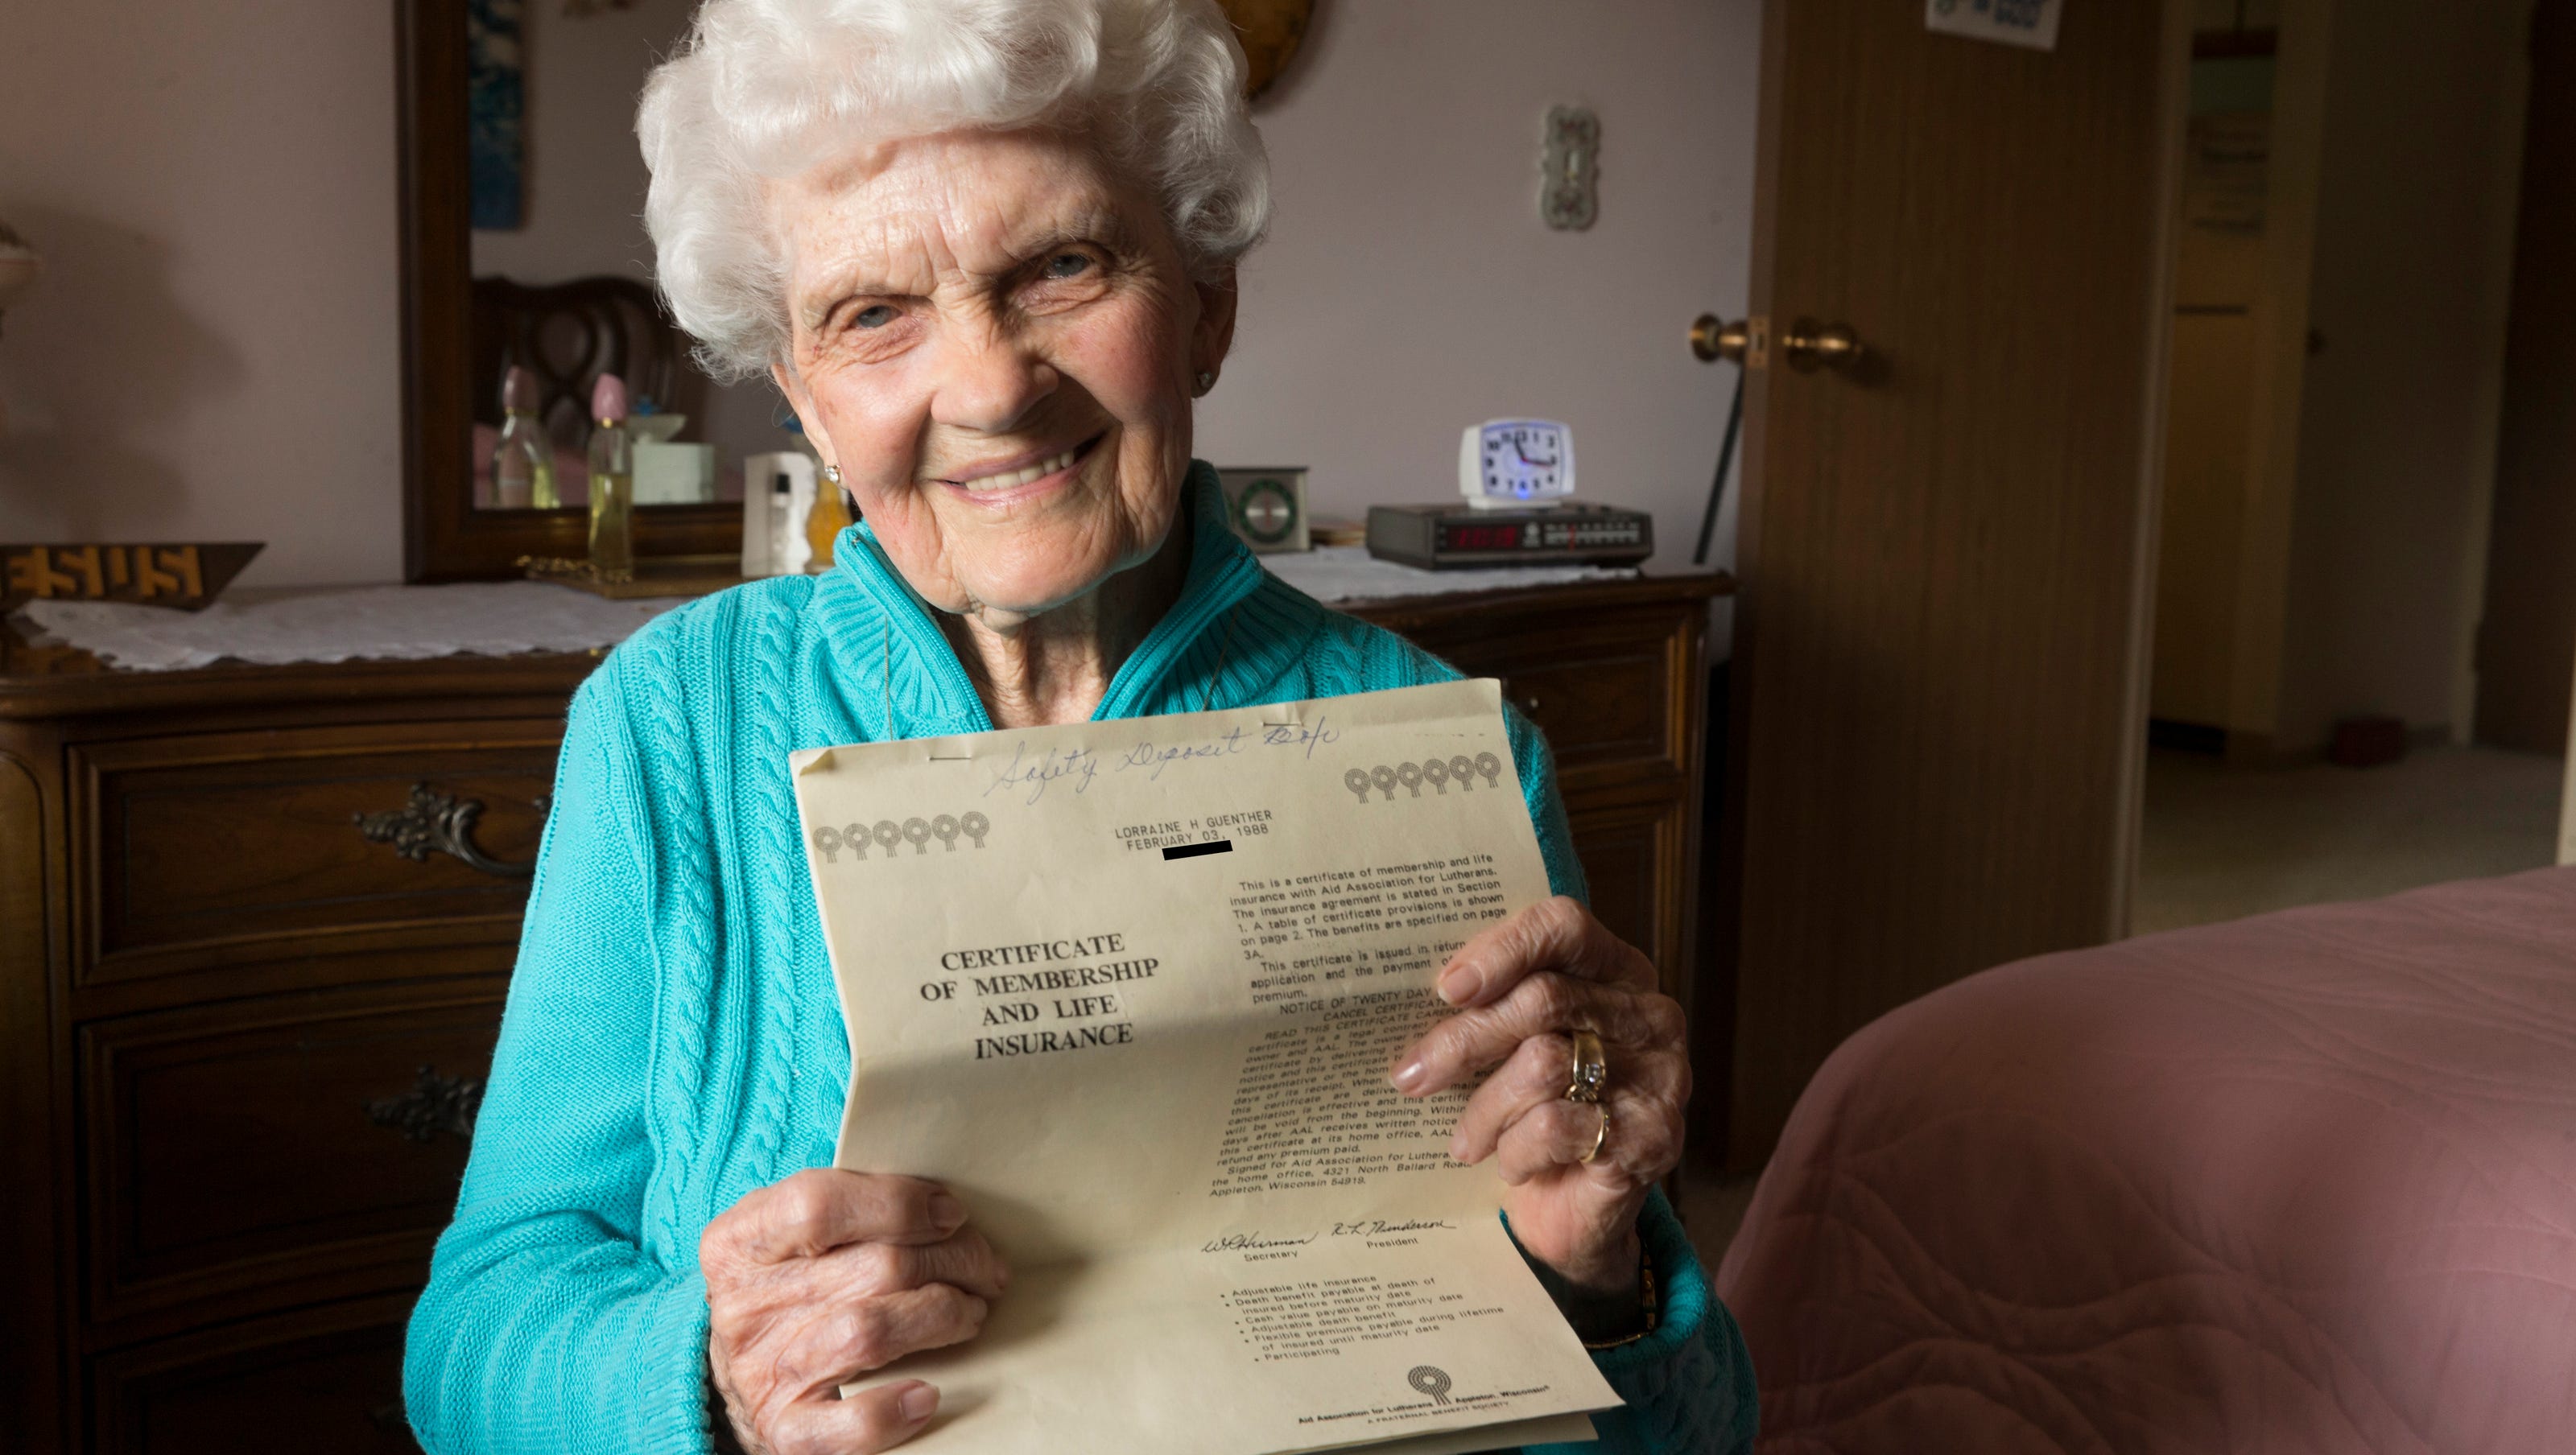 Safety Deposit Box
LORRAINE H GUENTHER
FEBRUARY 03, 1988
CERTIFICATE
OF MEMBERSHIP
AND LIFE
INSURANCE
This is a certificate of membership and life
insurance with Aid Association for Lutherans.
The insurance agreement is stated in Section
1. A table of certificate provisions is shown
on page 2. The benefits are specified on page
3A.
This certificate is issued in return
application and the payment of
premium.
NOTICE OF TWENTY DAY
CANCEL CERTIFICATE
READ THIS CERTIFICATE
certificate is a legal contract
owner and AAL. The owner
certificate by delivering or
notice and this certificate
representative or the home
days of its receipt. When
this certificate are
cancellation is effective and this
will be void from the beginning. Within
days after AAL receives written notice
this certificate at its home office, AAL
refund any premium paid.
Signed for Aid Association for
the home office, 4321 North Ballard
Appleton, Wisconsin 54919.
Secretary
President
• Adjustable life insurance
• Death benefit payable at death of
insured before maturity date
• Cash value payable on maturity date
• Adjustable death benefit
• Flexible premiums payable during lifetime
of insured until maturity date
• Participating
Aid Association for Lutherans Appleton, Wisconsin
A FRATERNAL BENEFIT SOCIETY
ESUS